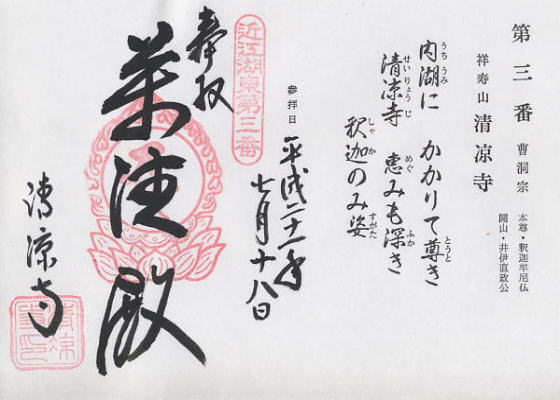 第三番 曹洞宗 本尊・釈迦牟尼仏
開山・井伊直政公
祥寿山 清凉寺
内湖に かかりて尊き
うちうみ とうと
清凉寺 恵みも深き
せいりょうじ めぐ ふか
釈迦のみ姿
しゃか すがた
参拝日 平成二十一年
七月十八日
近江湖東第三番
奉拝
殿
清凉寺